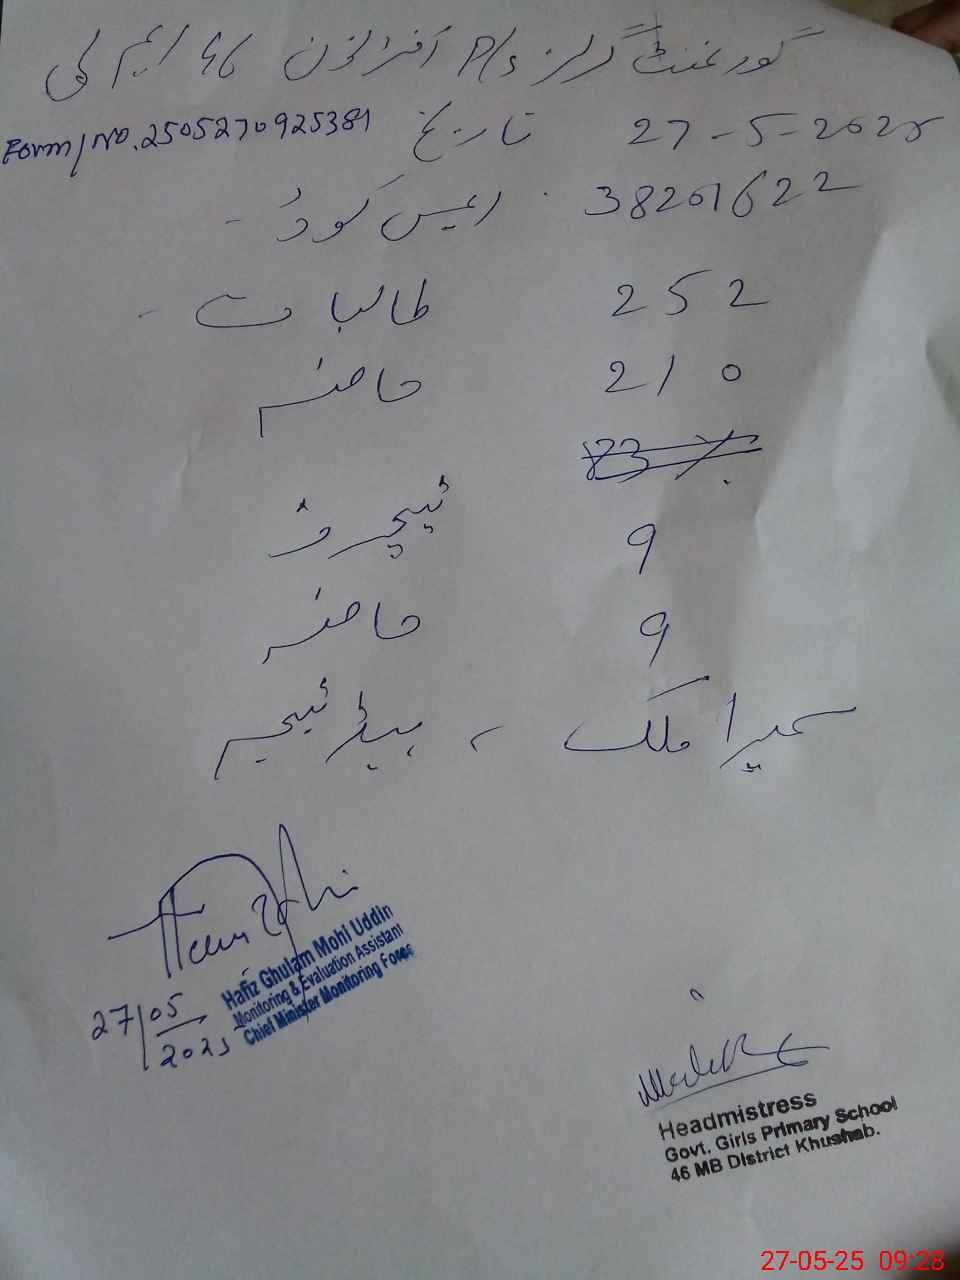 گورنمنٹ گرلز P/s آفٹرنون 46 ایم بی
27-5-2025 تاریخ Form/No.2505270925381
ایمس کوڈ 38201622
طالبات 252
حاضر 210
83%
ٹیچرز 9
حاضر 9
سمیرا ملک، ہیڈ ٹیچر
27/05/2025
Hafiz Ghulam Mohi Uddin
Monitoring & Evaluation Assistant
Chief Minister Monitoring Force
Headmistress
Govt. Girls Primary School
46 MB District Khushab.
27-05-25 09:28